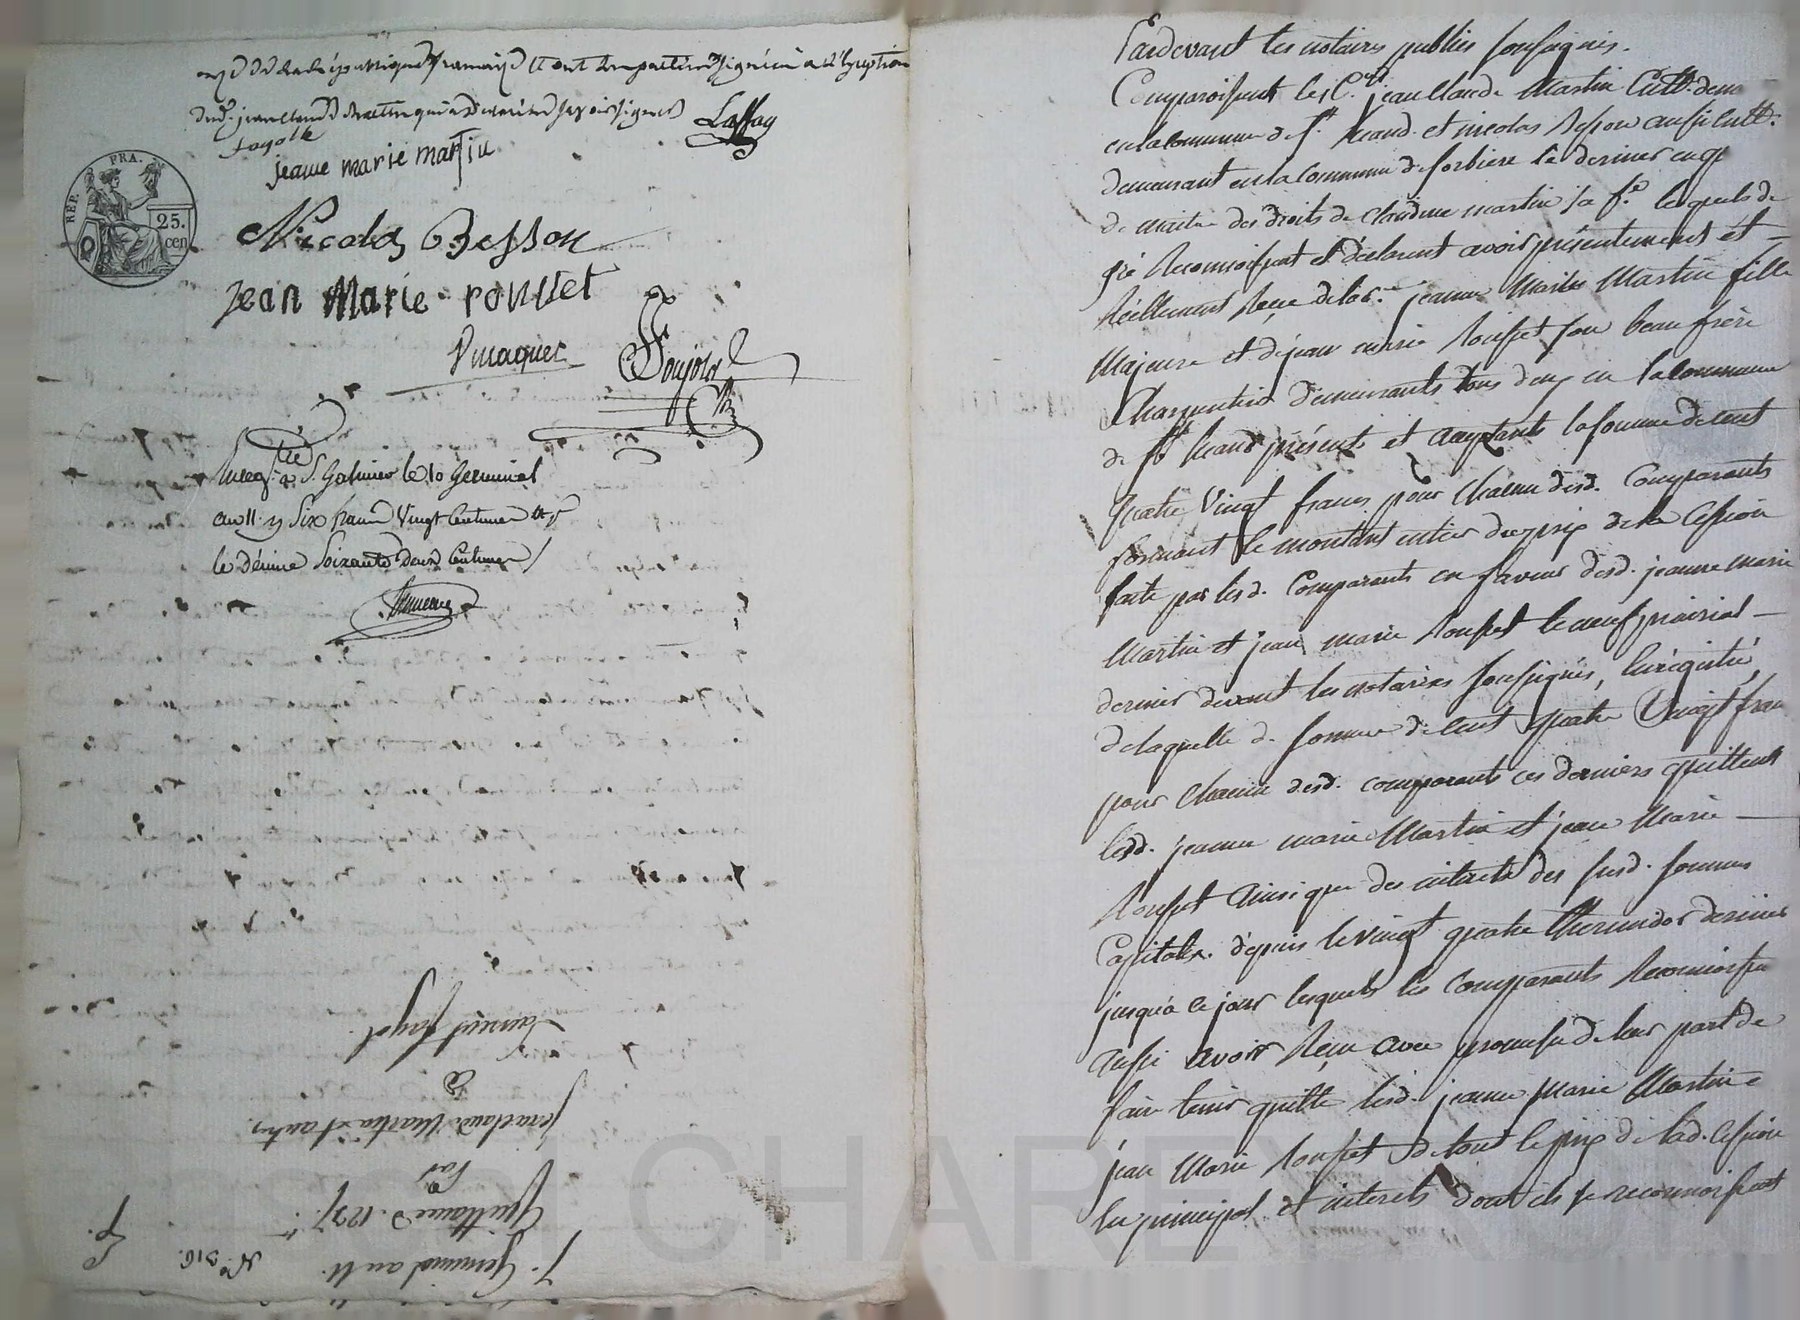 et ont les parties signé à l'exception
dud. jean Claude Martin qui a déclaré ne savoir signer
Lassay
jeanne marie martin
REP. FRA.
25.
cen
Nicolas Besson
Jean Marie rousset
Pmaquet
Soujolas
Enreg. à S. Galmier le 10 Germinal
an 11. Six francs Vingt Centimes
le décime Soixante deux Centimes
7. Germinal an 11. N.° 316.
Quittance d. 127
Par
Jean claude Martin et autres
à
Laurent fayol
Pardevant les notaires publics soussignés.
Comparoissent les C.ens jean Claude Martin Cult. dem.
en la commune de S.t heand. et nicolas Besson aussi cult.
demeurant en la Commune de Sorbiere le dernier en q.
de maitre des droits de claudine martin sa f.e lesquels de
gré Reconnoissent et déclarent avoir présentement et
Réellement Reçu de la c. jeanne Marie Martin fille
Majeure et de jean marie Rousset son beau frère
Charpentier demeurants tous deux en la commune
de S.t heand présents et acceptants la somme de cent
Quatre Vingt francs pour Chacun desd. Comparants
formant le montant entier du prix de la Cession
faite par lesd. Comparants en faveur desd. jeanne marie
Martin et jean marie Rousset le neuf prairial
dernier devant les notaires soussignés, Enregistré,
de laquelle d. somme de cent quatre Vingt fran
pour Chacun desd. comparants ces derniers quittent
lesd. jeanne marie Martin et jean Marie
Rousset Ainsi que des intérêts des susd. sommes
Capitales. depuis le vingt quatre thermidor dernier
jusqu'à ce jour lesquels les Comparants Reconnoissent
aussi avoir Reçu avec promesse de leur part de
faire tenir quitte lesd. jeanne Marie Martin e
jean Marie Rousset de tout le prix de lad. Cession
En principal et interets dont ils se reconnoissent
CHAREYRON